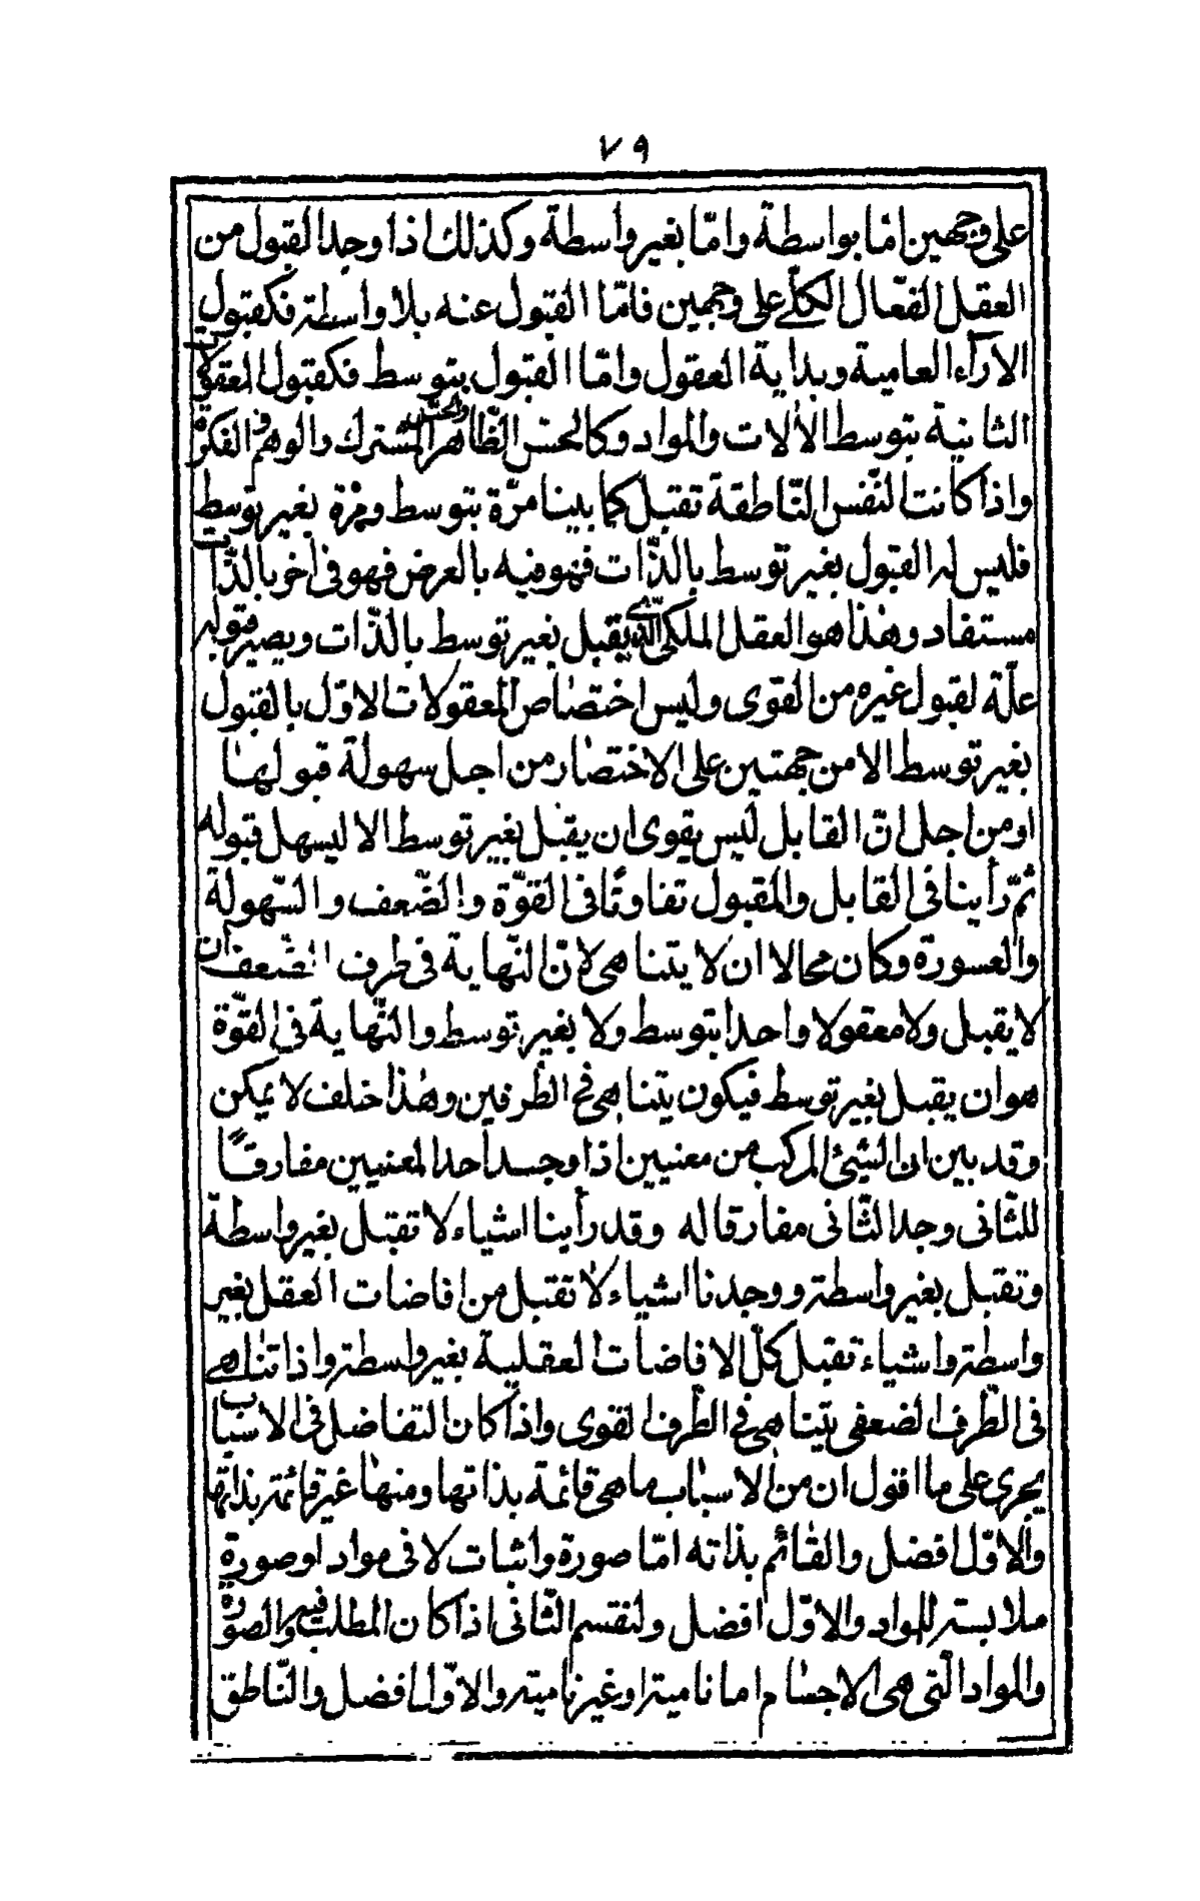 ٧٩
على وجهين امّا بواسطة وامّا بغير واسطة وكذلك اذا وجد القبول من
العقل الفعّال الكلّى على وجهين فامّا القبول عنه بلا واسطة فكقبول
الآراء العامية وبداية العقول وامّا القبول بتوسط فكقبول المعقولات
الثانية بتوسط الآلات والمواد وكالحسّ الظّاهر والحسّ المشترك والوهم والفكرة
واذا كانت النّفس النّاطقة تقبل كما بينا مرّة بتوسط ومرّة بغير توسط
فليس له القبول بغير توسط بالذّات فهو فيه بالعرض فهو فى اخر بالذّات
مستفاد وهذا هو العقل الملكى الّذى يقبل بغير توسط بالذّات ويصير قبوله
علّة لقبول غيره من القوى وليس اختصاص المعقولات الاوّل بالقبول
بغير توسط الا من جهتين على الاختصار من اجل سهولة قبولها
او من اجل انّ القابل ليس يقوى ان يقبل بغير توسط الا ليسهل قبوله
ثمّ رأينا فى القابل والمقبول تفاوتًا فى القوّة والضّعف والسّهولة
والعسورة وكان محالا ان لا يتناهى لانّ النّهاية فى طرف الضّعف ان
لا يقبل ولا معقولا واحدا بتوسط ولا بغير توسط والنّهاية فى القوّة
هو ان يقبل بغير توسط فيكون يتناهى فى الطّرفين وهذا خلف لا يمكن
وقد بين ان الشئ المركب من معنيين اذا وجد احد المعنيين مفارقًا
للثّانى وجد الثّانى مفارقا له وقد رأينا اشياء لا تقبل بغير واسطة
وتقبل بغير واسطة ووجدنا اشياء لا تقبل من افاضات العقل بغير
واسطة واشياء تقبل كلّ الافاضات العقلية بغير واسطة واذا تناهى
فى الطّرف الضعفى يتناهى فى الطّرف القوى واذا كان التفاضل فى الاسباب
يجرى على ما اقول ان من الاسباب ما هى قائمة بذاتها ومنها غير قائمة بذاتها
والاوّل افضل والقائم بذاته امّا صورة واثبات لا فى مواد او صورة
ملابسة للمواد والاوّل افضل ولنقسم الثّانى اذا كان المطلب فيه والصورة
والمواد الّتى هى الاجسام اما نامية او غير نامية والاوّل افضل والنّاطق